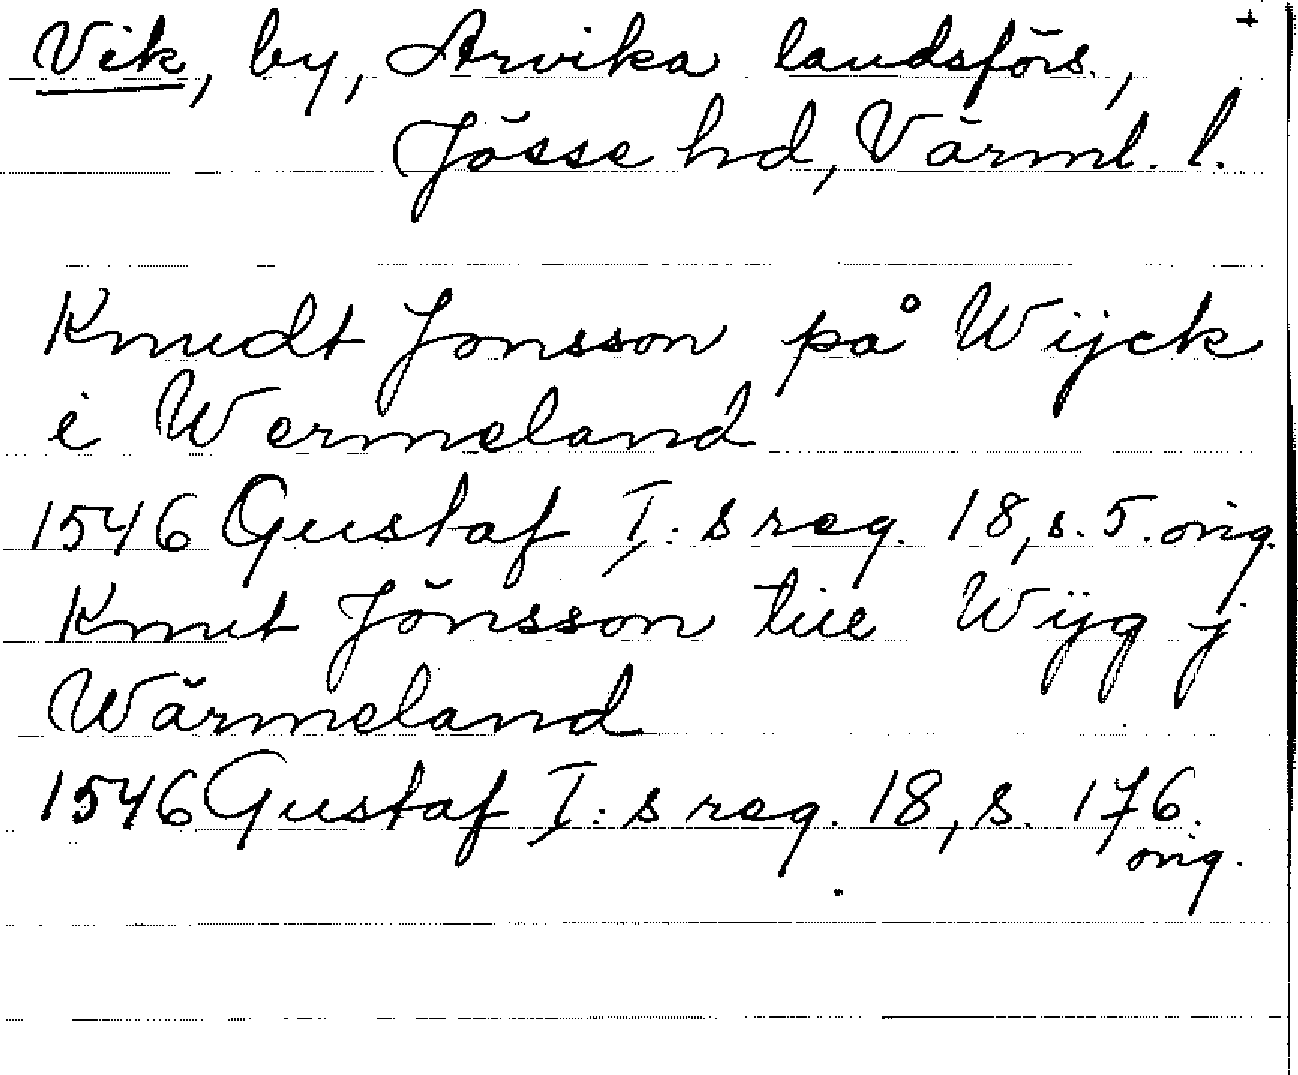 +
Vik, by, Arvika landsförs.,
Jösse hd, Värml. l.
Knudt Jonsson på Wijck
i Wermeland
1546 Gustaf I:s reg. 18, s. 5. orig.
Knut Jönsson till Wÿg j
Wärmeland
1546 Gustaf I:s reg. 18, s. 176.
orig.